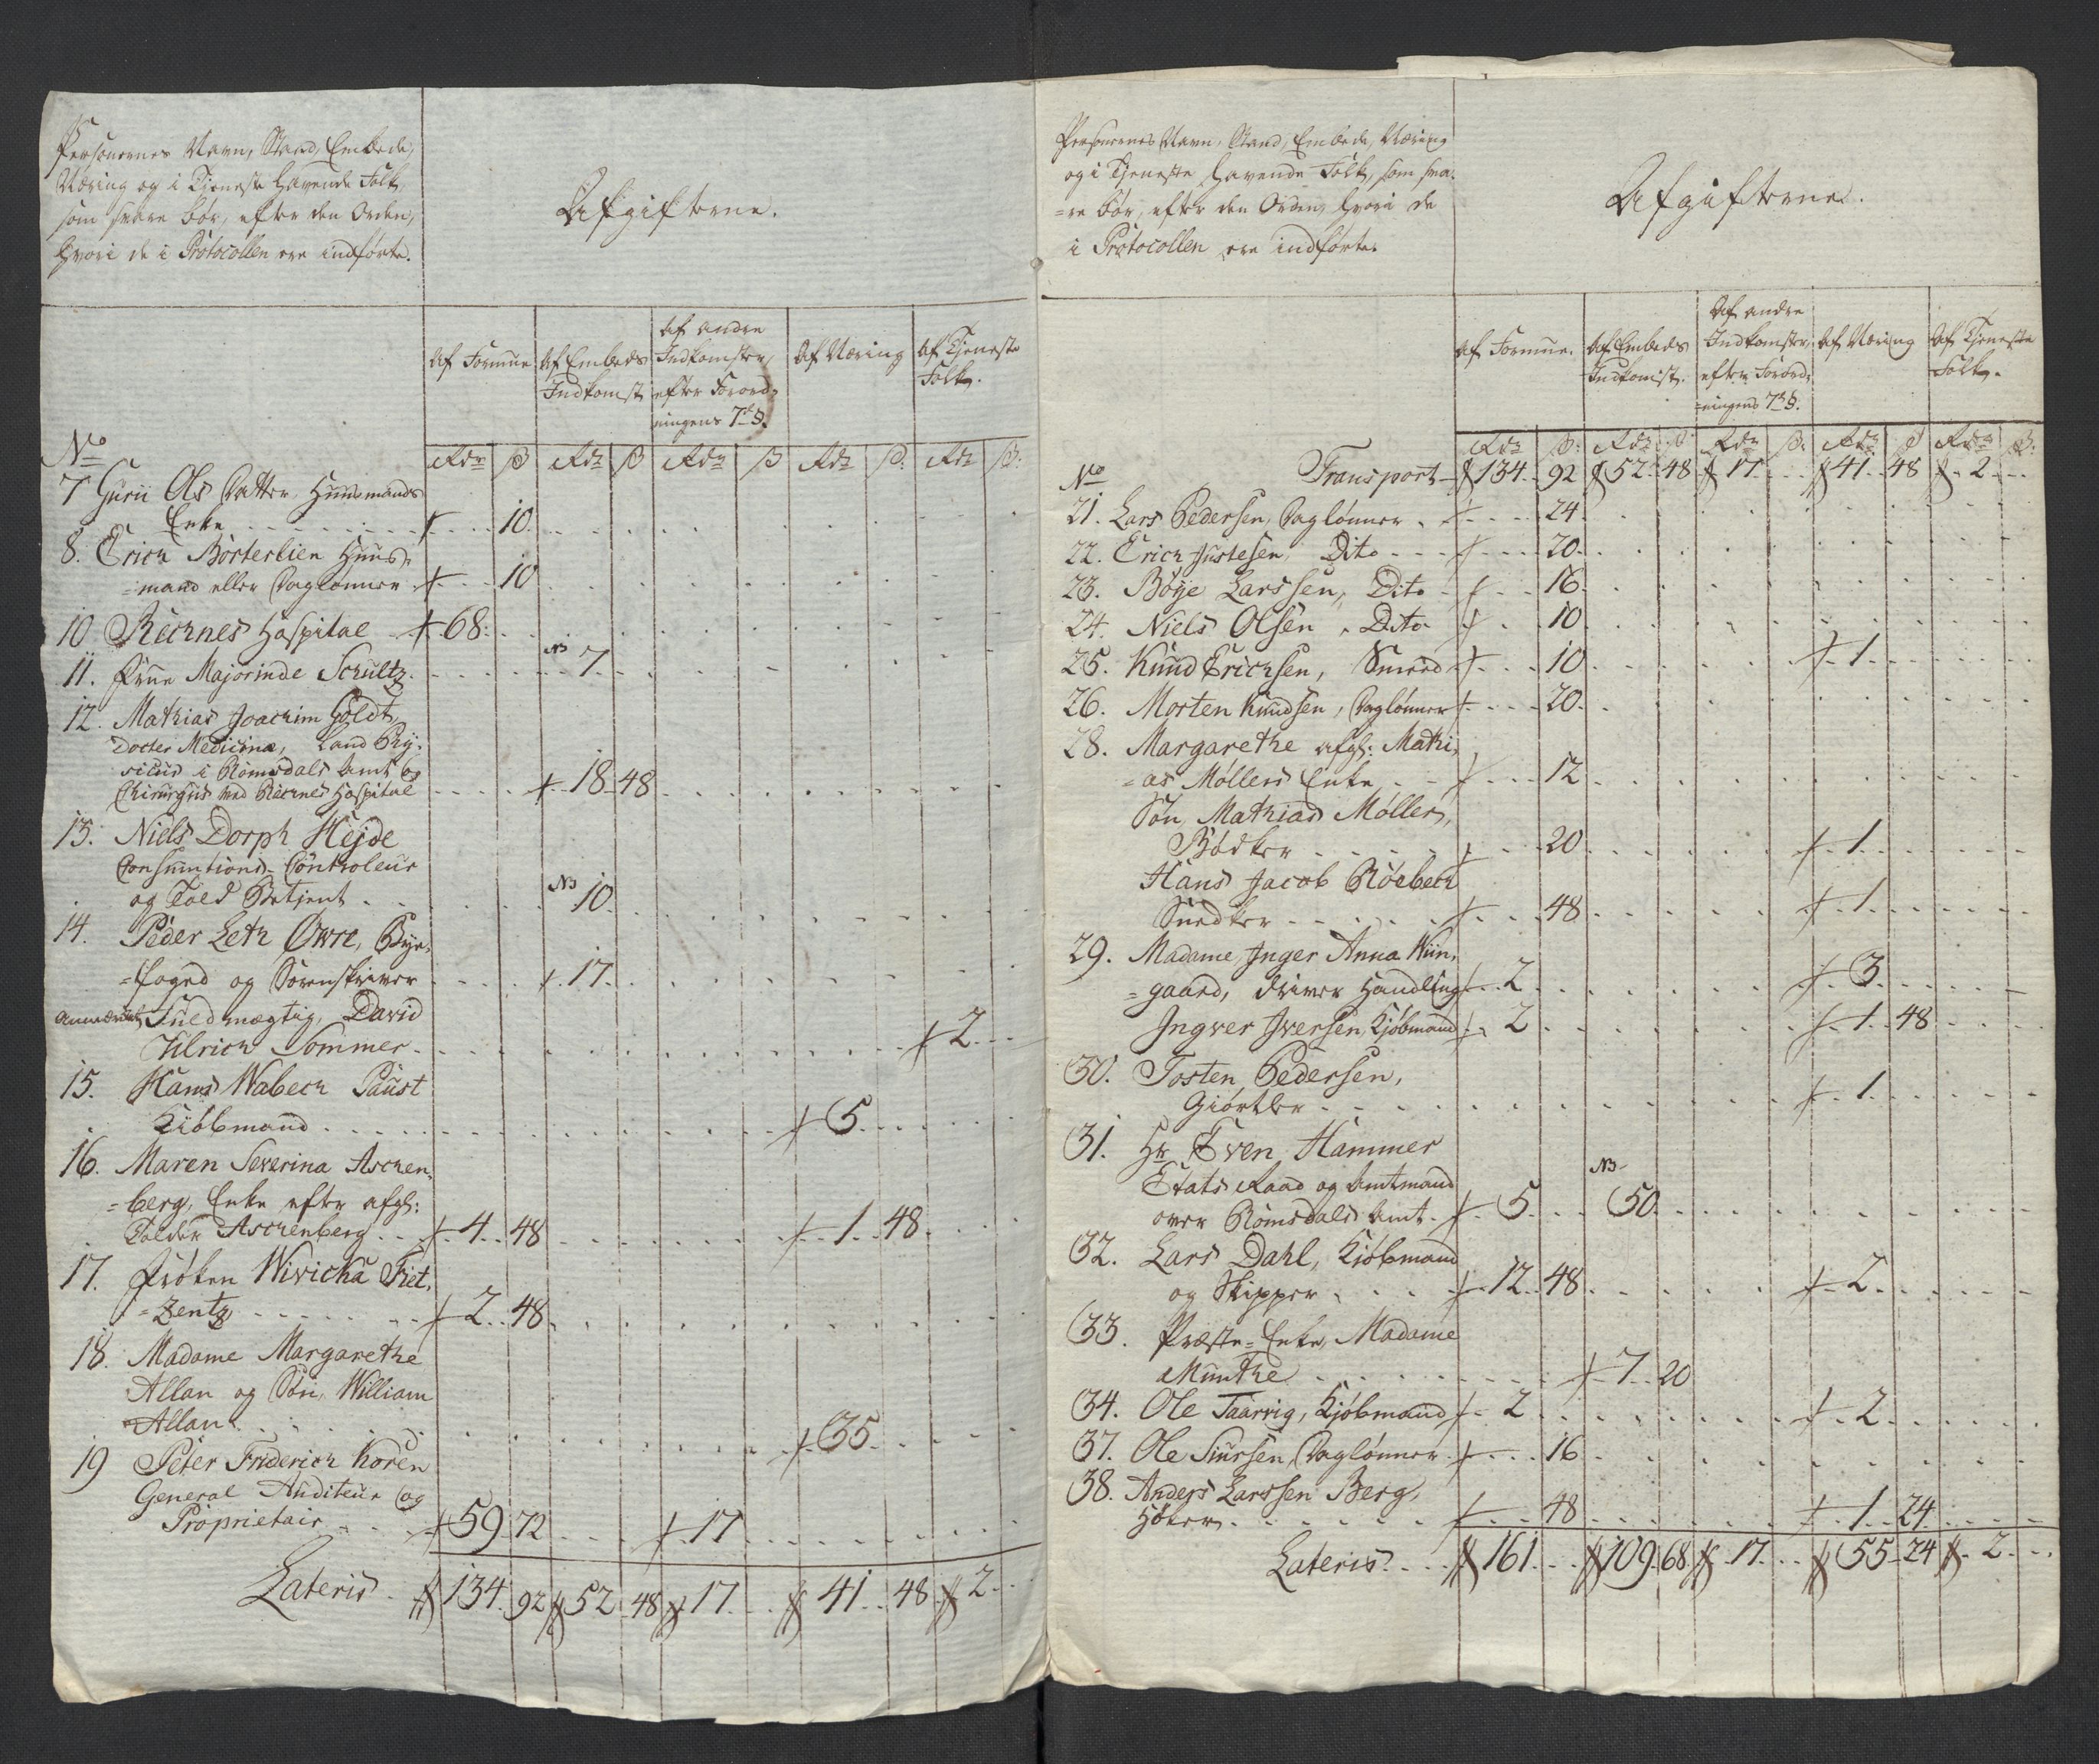 Personernes Navn, Stand, Embede,
Næring og i Tjeneste havende Folk,
som svare bør, efter den Orden,
hvori de i Protocollen ere indførte.
Afgifterne.
Af Formue
Af Embeds Indkomst
Af andre Indkomster, efter Forordningens 7de §.
Af Næring
Af Tjeneste Folk.
No
Rdr ß Rdr ß Rdr ß Rdr ß Rdr ß
7 Gurii Ols Datter, Huusmands
Enke 10.
8. Erich Børterlien Huus-
=mand eller Daglønner 10
10 Recknes Hospital 68.
11. Frue Majorinde Schultz. NB 7.
12. Mathias Joachim Goldt,
Docter Medicinæ, Land Phy-
sicus i Romsdals Amt og
Chirurgus ved Recknes Hospital 18 48
13. Niels Dorph Hejde
Consumtions-Controleur
og Told Betjent NB 10.
14. Peder Leth Øwre, Bye-
=foged og Sorenskriver 17.
Fuldmægtig, David
Ulrich Sommer 2
15. Hans Wabech Paust
Kiøbmand 5.
16. Maren Severina Aschen-
=berg, Enke efter afgl:
Tolder Aschenberg 4. 48 1. 48.
17. Frøken Wivicka Fiet-
=zentz 2. 48.
18. Madame Margarethe
Allan og Søn, William
Allan 35.
19 Peter Friderich Koren
General Auditeur og
Proprietair 59 72 17
Lateris 134. 92 52. 48 17. 41. 48 2.
Personernes Navn, Stand, Embede, Næring
og i Tjeneste havende Folk, som sva-
=re bør, efter den Orden, hvori de
i Protocollen ere indførte.
Afgifterne.
Af Formue.
Af Embeds Indkomst.
Af andre Indkomster, efter Forord-
=ningens 7de §.
Af Næring
Af Tjeneste Folk.
Rdr ß: Rdr ß Rdr ß: Rdr ß Rdr ß:
No Transport 134. 92 52. 48 17. 41. 48 2.
21. Lars Pedersen, Daglønner 24.
22. Erich Justesen, Dito 20.
23. Bøye Larssen, Dito 16.
24. Niels Olsen, Dito 10
25. Knud Erichsen, Smed 10 1.
26. Morten Knudsen, Daglønner 20.
28. Margarethe afgl: Mathi-
=as Møllers Enke 12
Søn, Mathias Møller,
Bødker 20 1.
Hans Jacob Røebech
Snedker 48 1.
29. Madame Inger Anna Wiin-
=gaard, driver Handling 2. 3.
Ingver Iversen, Kjøbmand 2. 1. 48
30. Tosten Pedersen,
Giørtler 1.
31. Hr Even Hammer
Etats Raad og Amtmand
over Romsdals Amt. 5. NB 50.
32. Lars Dahl, Kiøbmand
og Skipper 12. 48 2.
33. Præste-Enke, Madame
Munthe 7. 20
34. Ole Taarvig, Kjøbmand 2. 2.
37. Ole Siursen, Daglønner 16
38. Anders Larssen Berg,
Høker 48 1. 24.
Lateris 161. 109. 68 17. 55. 24 2.